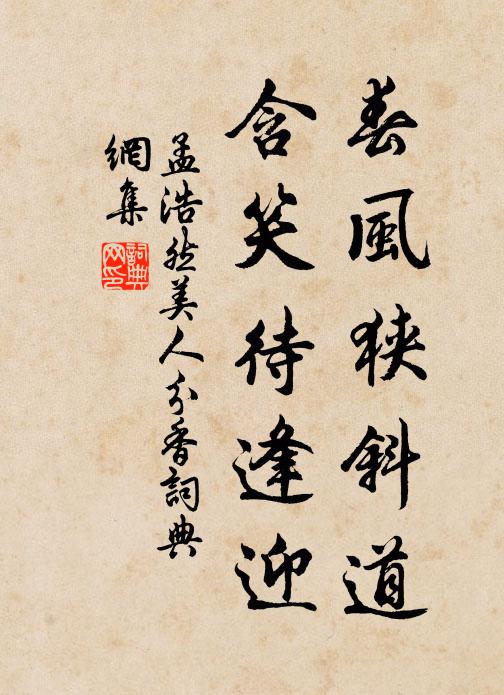 春風狭斜道
含笑待逢迎
孟浩然美人分香詞典
網集
詞典
网印